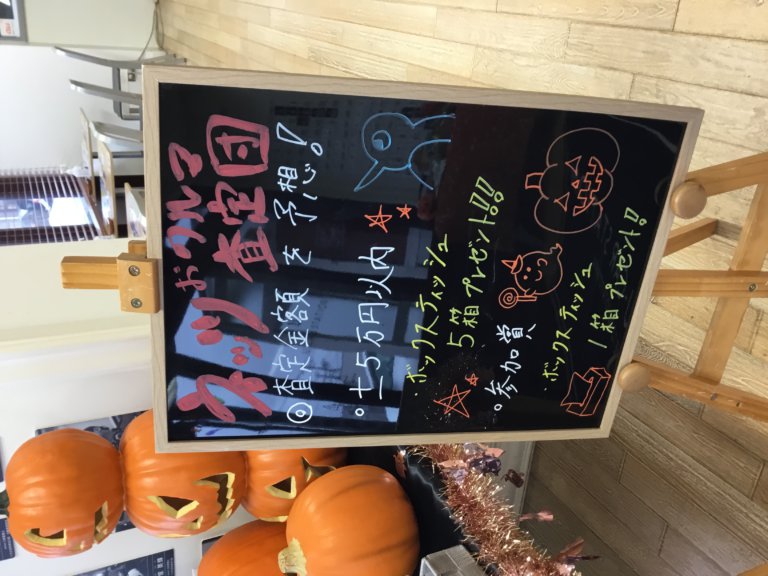 ネッツおクルマ
査定団
◎査定金額を予想!
。±5万円以内
・ボックスティッシュ
5箱プレゼント!!!
。参加賞
ボックスティッシュ
1箱プレゼント!!